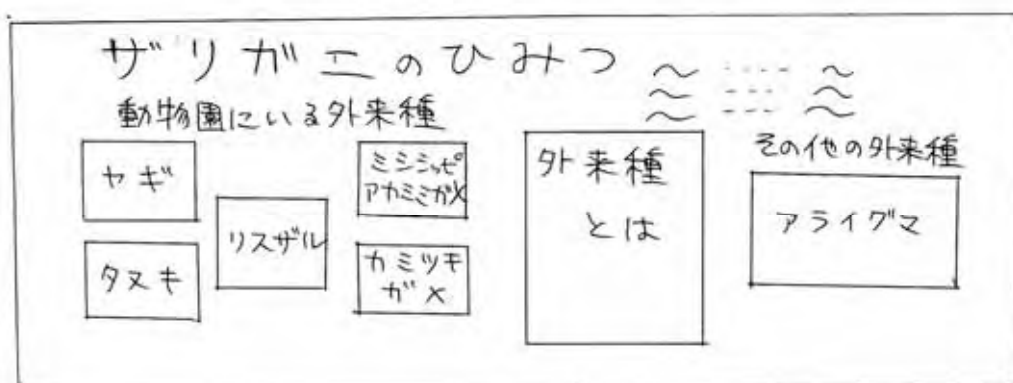 ザリガニのひみつ
動物園にいる外来種
ヤギ
タヌキ
リスザル
ミシシッピ
アカミミガメ
カミツキ
ガメ
外来種
とは
その他の外来種
アライグマ